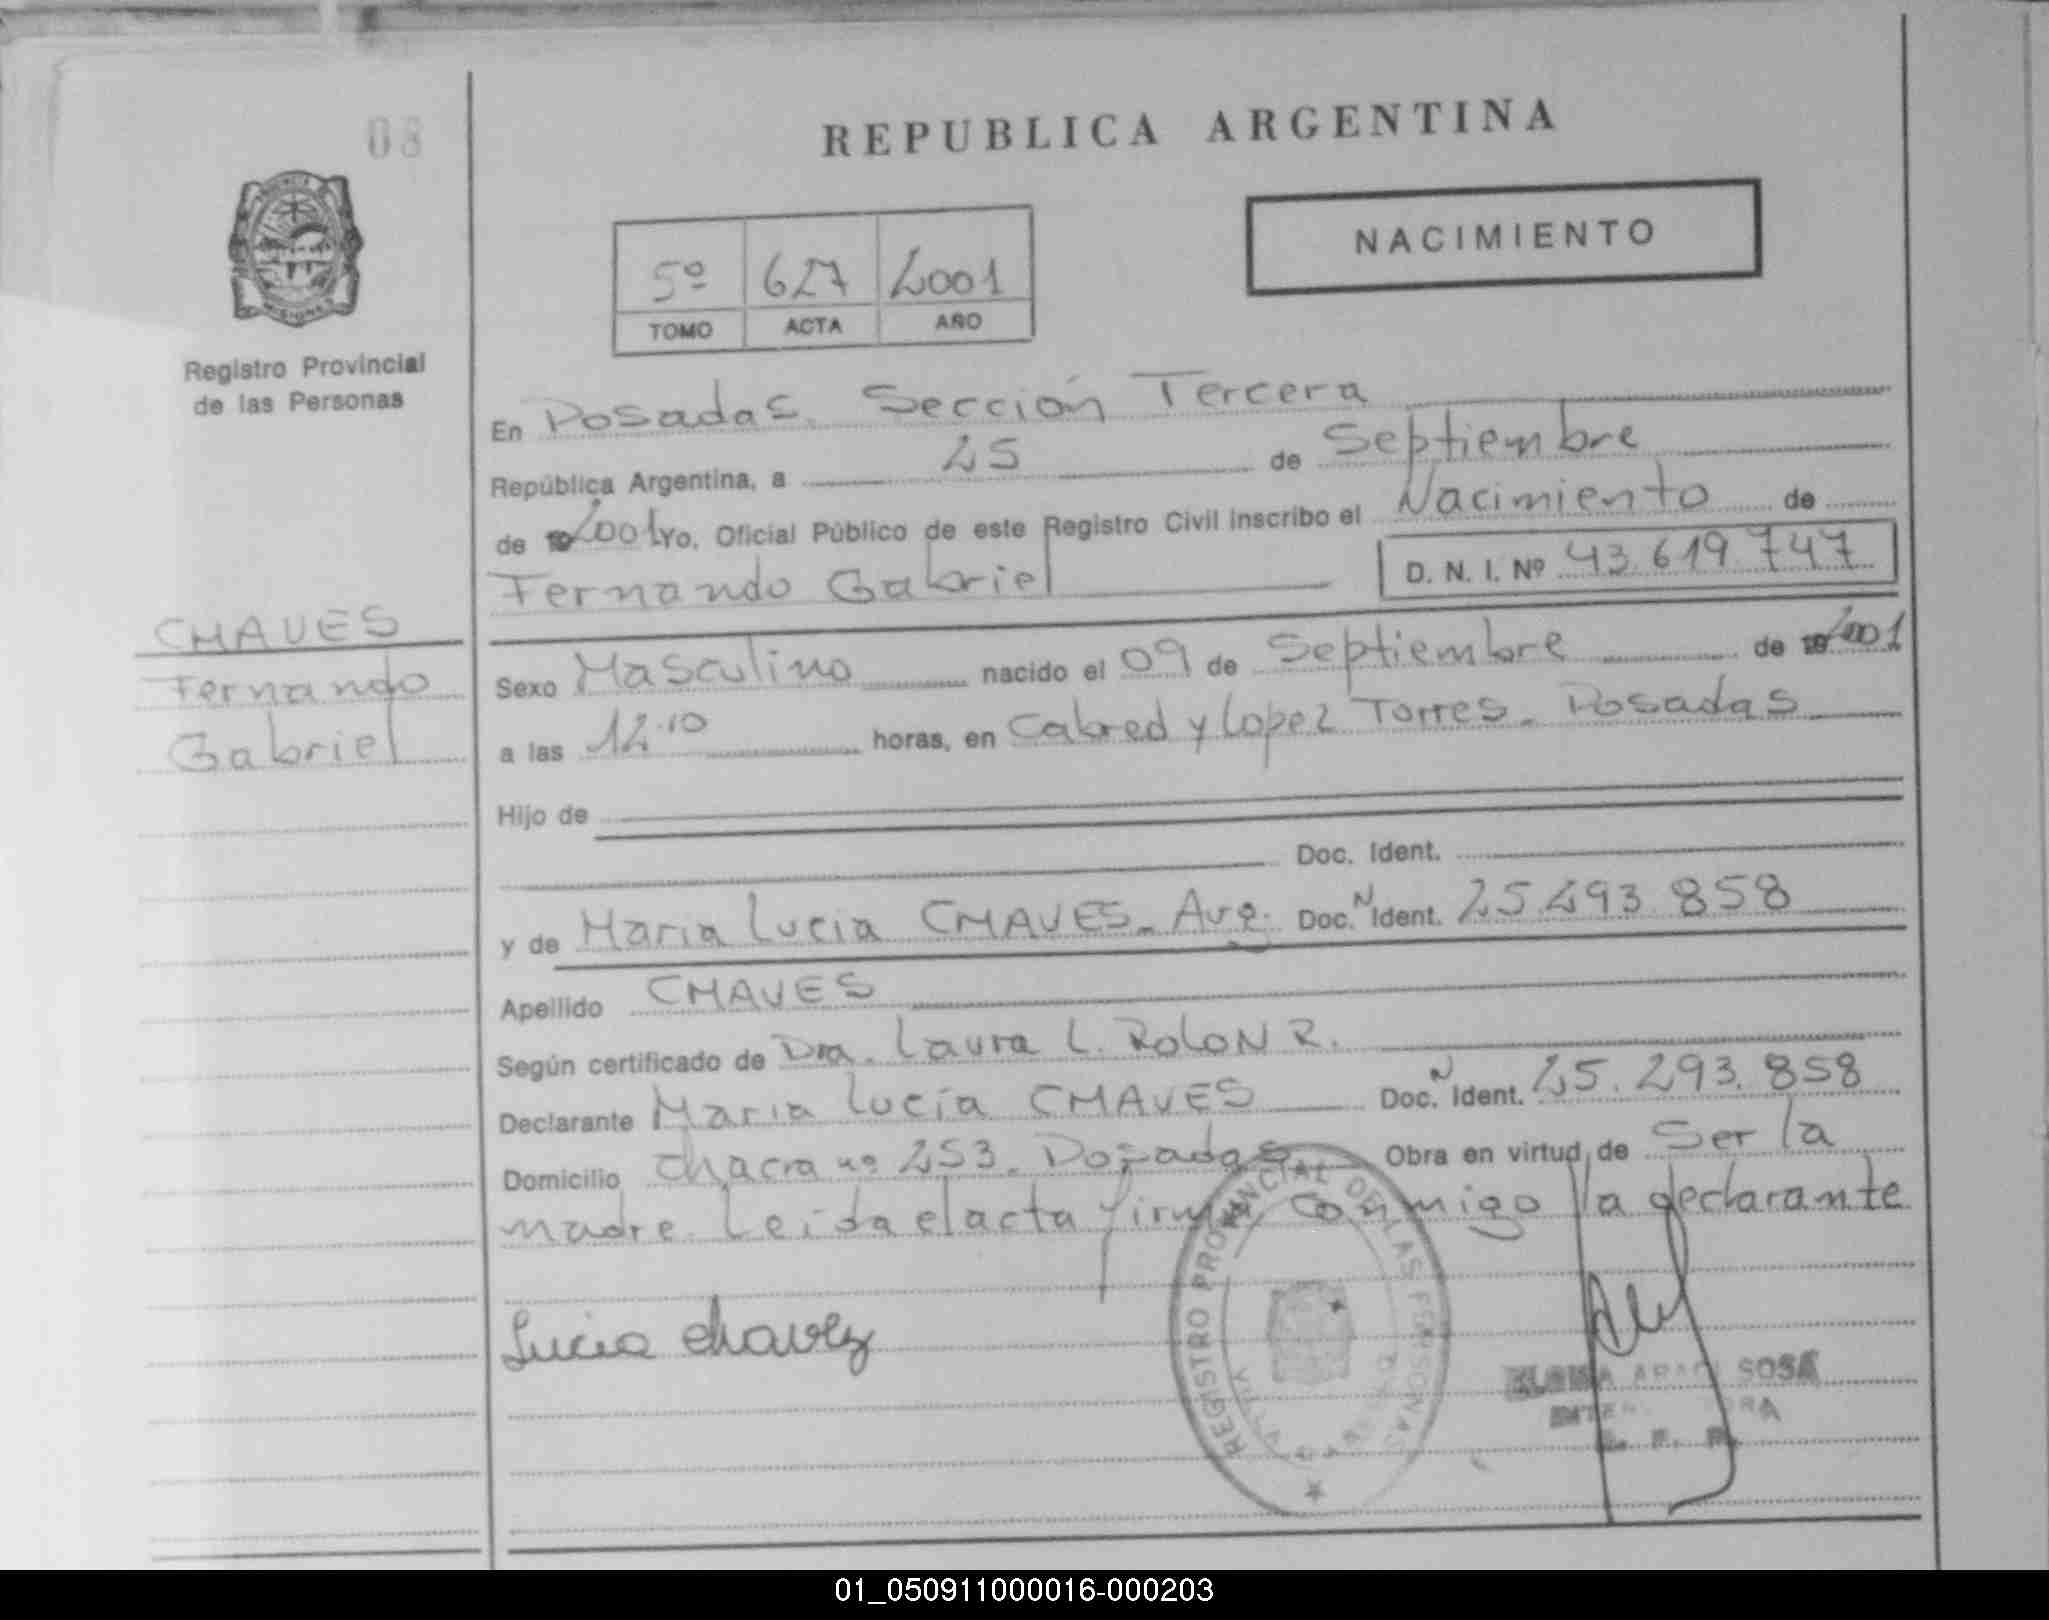 08
REPUBLICA ARGENTINA
NACIMIENTO
5º 627 2001
TOMO ACTA AÑO
Registro Provincial
de las Personas
En Posadas. Sección Tercera
República Argentina, a 25 de Septiembre
de 2001 Yo, Oficial Público de este Registro Civil inscribo el Nacimiento de
Fernando Gabriel D. N. I. Nº 43.619.747
CHAVES
Fernando
Gabriel
Sexo Masculino nacido el 09 de Septiembre de 2001
a las 12.10 horas, en Cabred y Lopez Torres. Posadas
Hijo de
Doc. Ident.
y de Maria Lucia CHAVES. Arg. Doc. N Ident. 25.293.858
Apellido CHAVES
Según certificado de Dra. Laura L. ROLON R.
Declarante Maria Lucía CHAVES Doc. N Ident. 25.293.858
Domicilio chacra nº 253. Posadas Obra en virtud de Ser la
madre. Leída el acta firma conmigo la declarante
Lucia chavez
REGISTRO PROVINCIAL DE LAS PERSONAS
SOSA
01_050911000016-000203